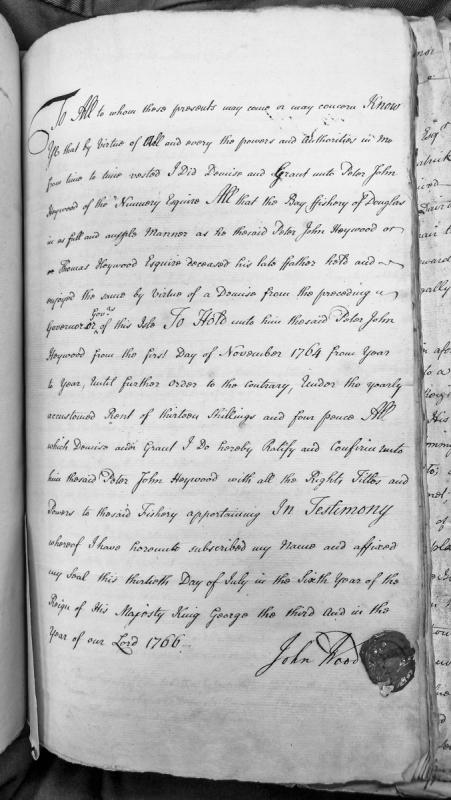 To All to whom these presents may come or may concern Know
Ye that by Virtue of All and every the powers and Authorities in me
from time to time vested I Did Demise and Grant unto Peter John
Heywood of the Nunnery Esquire All that the Bay ffishery of Douglas
in as full and ample Manner as he thesaid Peter John Heywood or
or Thomas Heywood Esquire deceased his late ffather held and
enjoyed the same by Virtue of a Demise from the preceding
Governor or Govrs of this Isle To Hold unto him thesaid Peter John
Heywood from the first Day of November 1764 from Year
to Year, Until further order to the contrary, Under the yearly
accustomed Rent of thirteen Shillings and four pence All
which Demise and Grant I Do hereby Ratify and Confirm unto
him thesaid Peter John Heywood with all the Rights Titles and
Powers to thesaid Fishery appertaining In Testimony
whereof I have hereunto subscribed my Name and affixed
my Seal this thirtieth Day of July in the Sixth Year of the
Reign of His Majesty King George the third And in the
Year of our Lord 1766.
John Wood